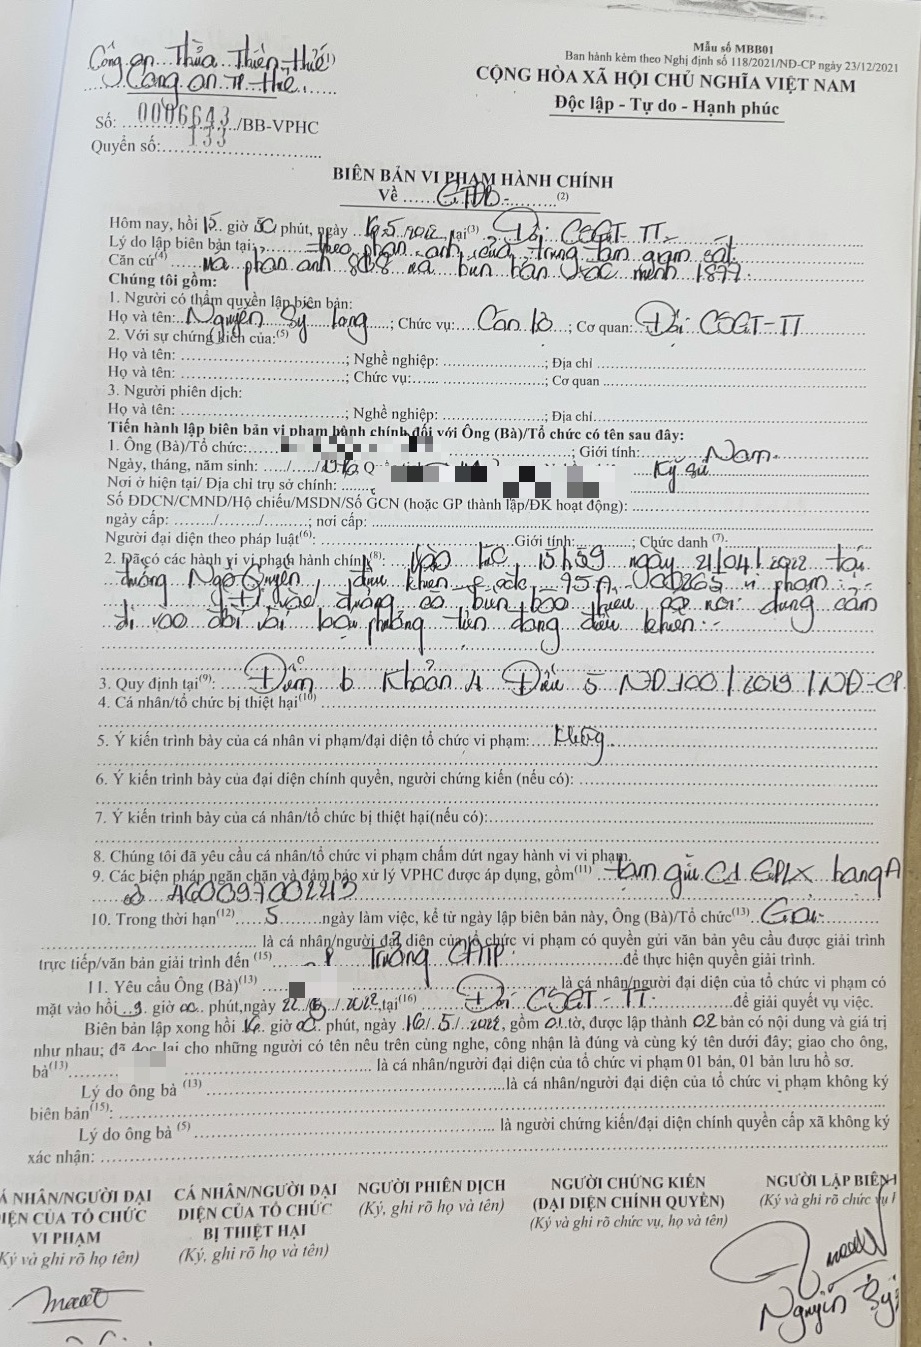 Mẫu số MBB01
Công an Thừa Thiên Huế(1)
Ban hành kèm theo Nghị định số 118/2021/NĐ-CP ngày 23/12/2021
Công an TP Huế
CỘNG HÒA XÃ HỘI CHỦ NGHĨA VIỆT NAM
Độc lập - Tự do - Hạnh phúc
Số: 0006643/BB-VPHC
Quyển số: 133
BIÊN BẢN VI PHẠM HÀNH CHÍNH
Về GTĐB (2)
Hôm nay, hồi 15 giờ 50 phút, ngày 16/5/2022, tại(3) Đội CSGT-TT
Lý do lập biên bản tại: theo phản ánh của trung tâm giám sát
Căn cứ(4) và phản ánh 808 và bun bản xác minh 1877
Chúng tôi gồm:
1. Người có thẩm quyền lập biên bản:
Họ và tên: Nguyễn Sỹ Long; Chức vụ: Cán bộ; Cơ quan: Đội CSGT-TT
2. Với sự chứng kiến của:(5)
Họ và tên: ; Nghề nghiệp: ; Địa chỉ
Họ và tên: ; Chức vụ: ; Cơ quan
3. Người phiên dịch:
Họ và tên: ; Nghề nghiệp: ; Địa chỉ
Tiến hành lập biên bản vi phạm hành chính đối với Ông (Bà)/Tổ chức có tên sau đây:
1. Ông (Bà)/Tổ chức: ; Giới tính: Nam
Ngày, tháng, năm sinh: / / Q Kỹ sư
Nơi ở hiện tại/ Địa chỉ trụ sở chính:
Số ĐDCN/CMND/Hộ chiếu/MSDN/Số GCN (hoặc GP thành lập/ĐK hoạt động):
ngày cấp: / / ; nơi cấp:
Người đại diện theo pháp luật(6): Giới tính: ; Chức danh (7):
2. Đã có các hành vi vi phạm hành chính(8): Vào lúc 15h59 ngày 21/04/2022 tại
đường Ngô Quyền, điều khiển 75A-00265 vi phạm:
Đi vào đường có bun báo hiệu có nội dung cấm
đi vào đối với loại phương tiện đang điều khiển
3. Quy định tại(9): Điểm b Khoản 4 Điều 5 NĐ 100/2019/NĐ-CP
4. Cá nhân/tổ chức bị thiệt hại(10)
5. Ý kiến trình bày của cá nhân vi phạm/đại diện tổ chức vi phạm: Không
6. Ý kiến trình bày của đại diện chính quyền, người chứng kiến (nếu có):
7. Ý kiến trình bày của cá nhân/tổ chức bị thiệt hại(nếu có):
8. Chúng tôi đã yêu cầu cá nhân/tổ chức vi phạm chấm dứt ngay hành vi vi phạm.
9. Các biện pháp ngăn chặn và đảm bảo xử lý VPHC được áp dụng, gồm(11) tạm giữ 01 GPLX hạng A
số AG009700213
10. Trong thời hạn(12) 5 ngày làm việc, kể từ ngày lập biên bản này, Ông (Bà)/Tổ chức(13)
là cá nhân/người đại diện của tổ chức vi phạm có quyền gửi văn bản yêu cầu được giải trình
trực tiếp/văn bản giải trình đến (15) Trưởng CATP để thực hiện quyền giải trình.
11. Yêu cầu Ông (Bà)(13) là cá nhân/người đại diện của tổ chức vi phạm có
mặt vào hồi 9 giờ 00 phút, ngày 22/5/2022, tại(16) Đội CSGT-TT để giải quyết vụ việc.
Biên bản lập xong hồi 16 giờ 00 phút, ngày 16/5/2022, gồm 01 tờ, được lập thành 02 bản có nội dung và giá trị
như nhau; đã đọc lại cho những người có tên nêu trên cùng nghe, công nhận là đúng và cùng ký tên dưới đây; giao cho ông,
bà(13) là cá nhân/người đại diện của tổ chức vi phạm 01 bản, 01 bản lưu hồ sơ.
Lý do ông bà (13) là cá nhân/người đại diện của tổ chức vi phạm không ký
biên bản(15):
Lý do ông bà (5) là người chứng kiến/đại diện chính quyền cấp xã không ký
xác nhận:
Á NHÂN/NGƯỜI ĐẠI
IỆN CỦA TỔ CHỨC
VI PHẠM
(Ký và ghi rõ họ tên)
CÁ NHÂN/NGƯỜI ĐẠI
DIỆN CỦA TỔ CHỨC
BỊ THIỆT HẠI
(Ký, ghi rõ họ và tên)
NGƯỜI PHIÊN DỊCH
(Ký, ghi rõ họ và tên)
NGƯỜI CHỨNG KIẾN
(ĐẠI DIỆN CHÍNH QUYỀN)
(Ký và ghi rõ chức vụ, họ và tên)
NGƯỜI LẬP BIÊN
(Ký và ghi rõ chức vụ
Nguyễn Sỹ